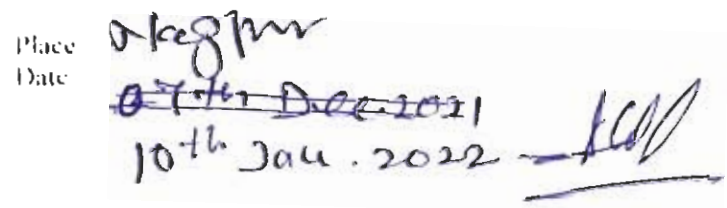 Place Nagpur
Date
07th Dec 2021
10th Jan. 2022